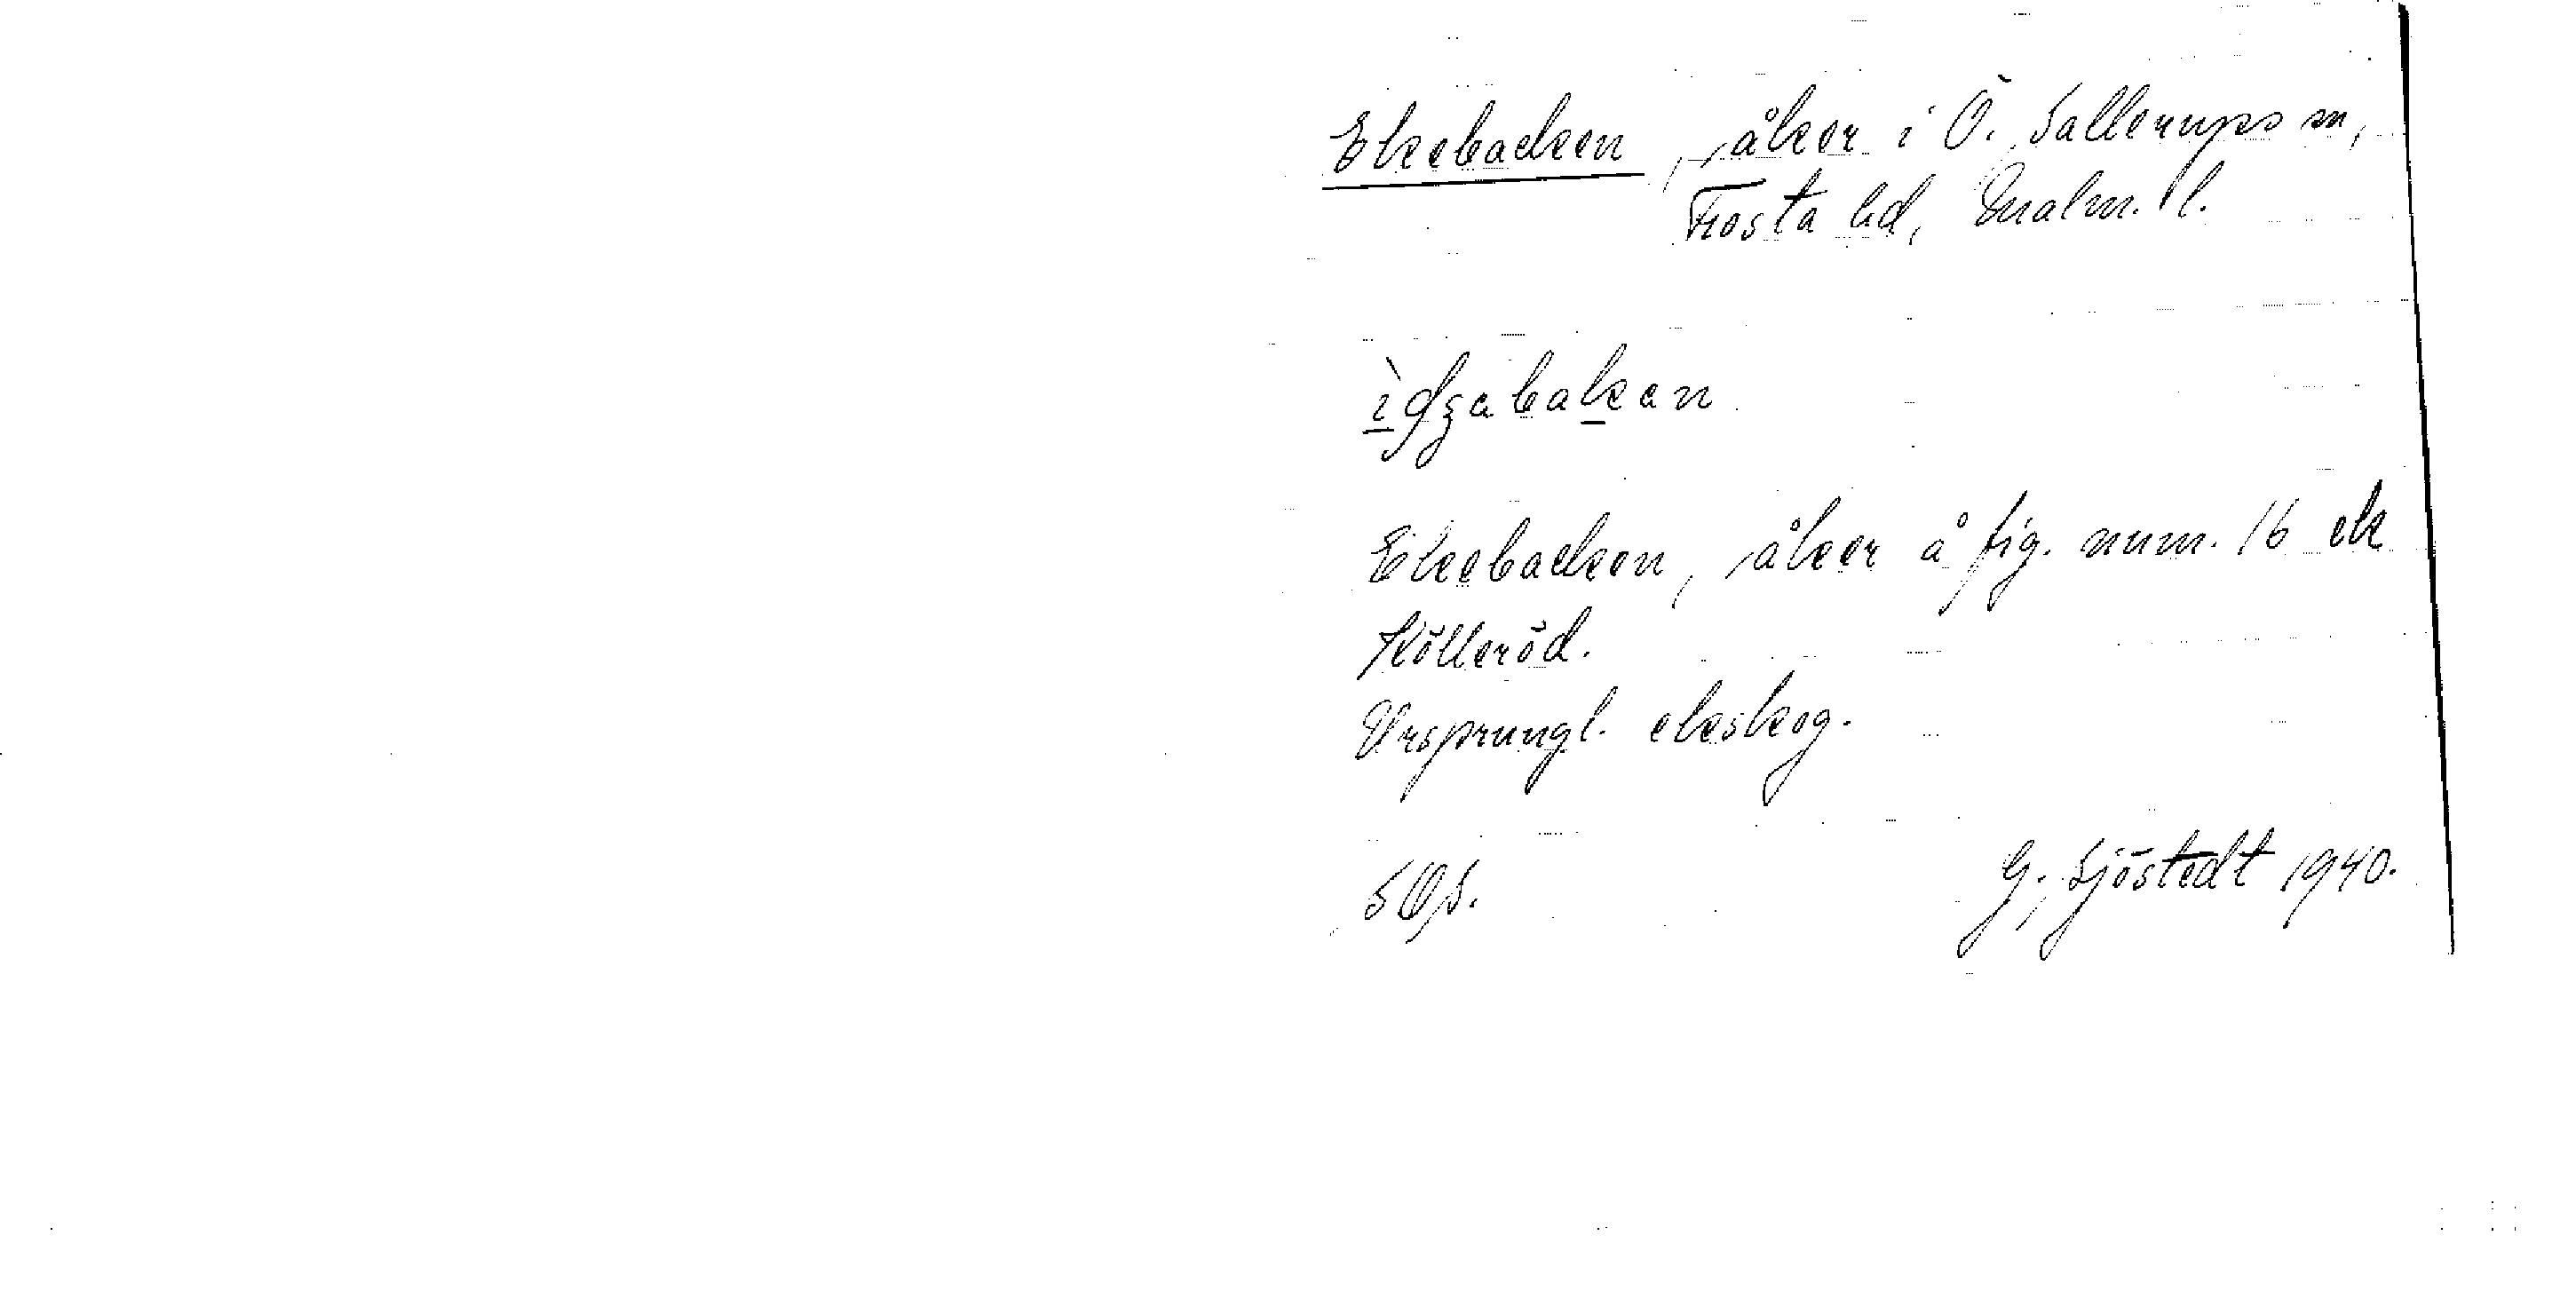 Ekebacken, åker i Ö. Sallerups sn,
Frosta hd, Malm. l.
ìdzabakan
Ekebacken, åker å fig. num. 16 ek
Kölleröd.
Ursprungl. ekskog.
SOS.
G. Sjöstedt 1940.